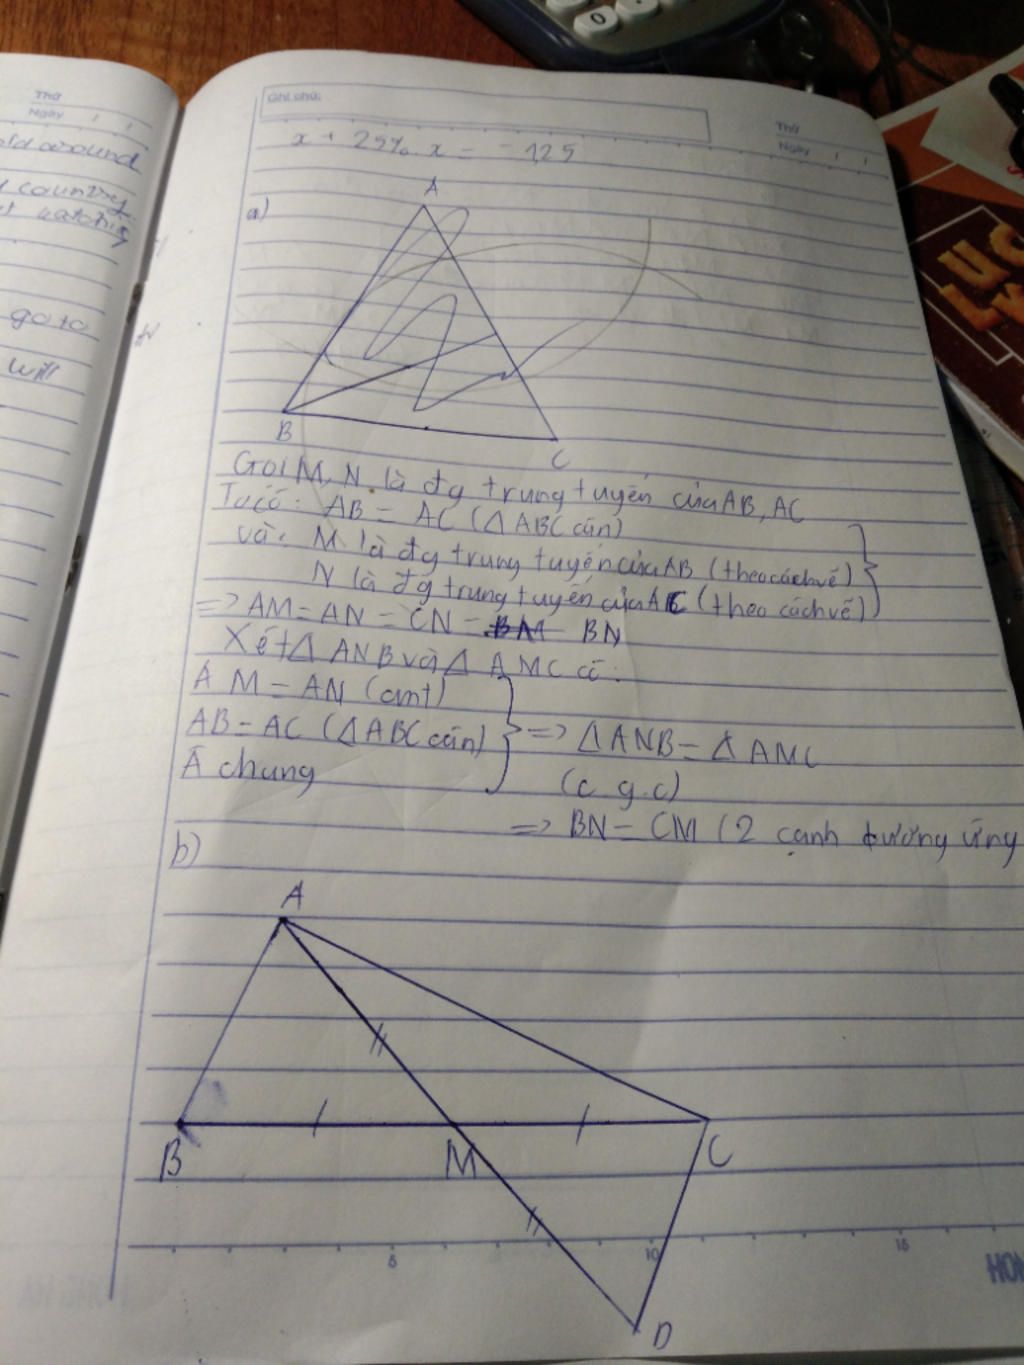 Ghi chú:
Thứ
Ngày
Thứ
Ngày
around
country
watching
go to
will
x + 25%. x = -1,25
a)
A
B
C
Gọi M, N là đg trung tuyến của AB, AC
Ta có: AB = AC (Δ ABC cân)
và: M là đg trung tuyến của AB (theo cách vẽ)
N là đg trung tuyến của AC (theo cách vẽ)
=> AM = AN = CN = BN
Xét Δ ANB và Δ AMC có:
AM = AN (cmt)
AB = AC (Δ ABC cân)
=> Δ ANB = Δ AMC
Â chung
(c g.c)
=> BN = CM (2 cạnh tương ứng
b)
A
B
M
C
D
5
10
15
HON